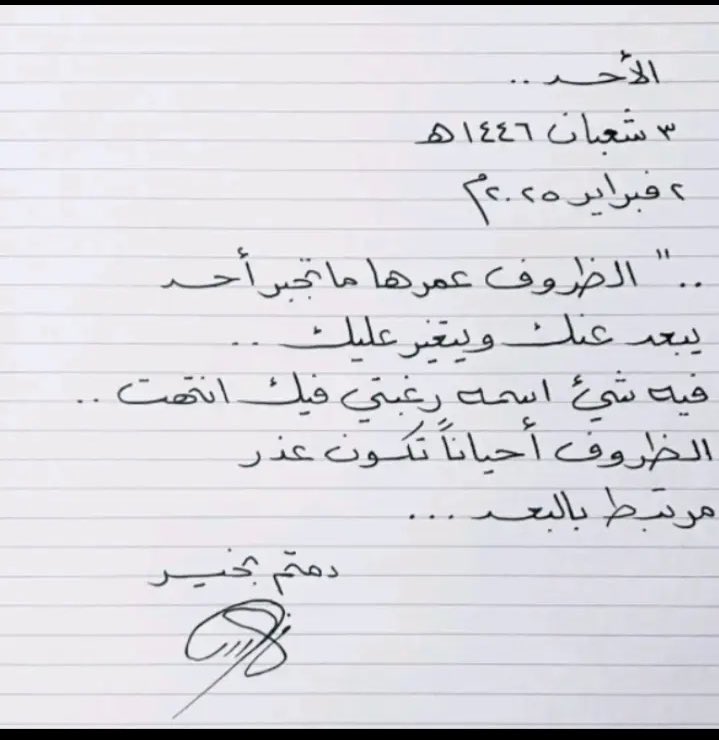 الأحد ..
٣ شعبان ١٤٤٦هـ
٢ فبراير ٢٠٢٥م
.." الظروف عمرها ماتجبر أحد
يبعد عنك ويتغير عليك ..
فيه شيء اسمه رغبتي فيك انتهت ..
الظروف أحياناً تكون عذر
مرتبط بالبعد ...
دمتم بخير